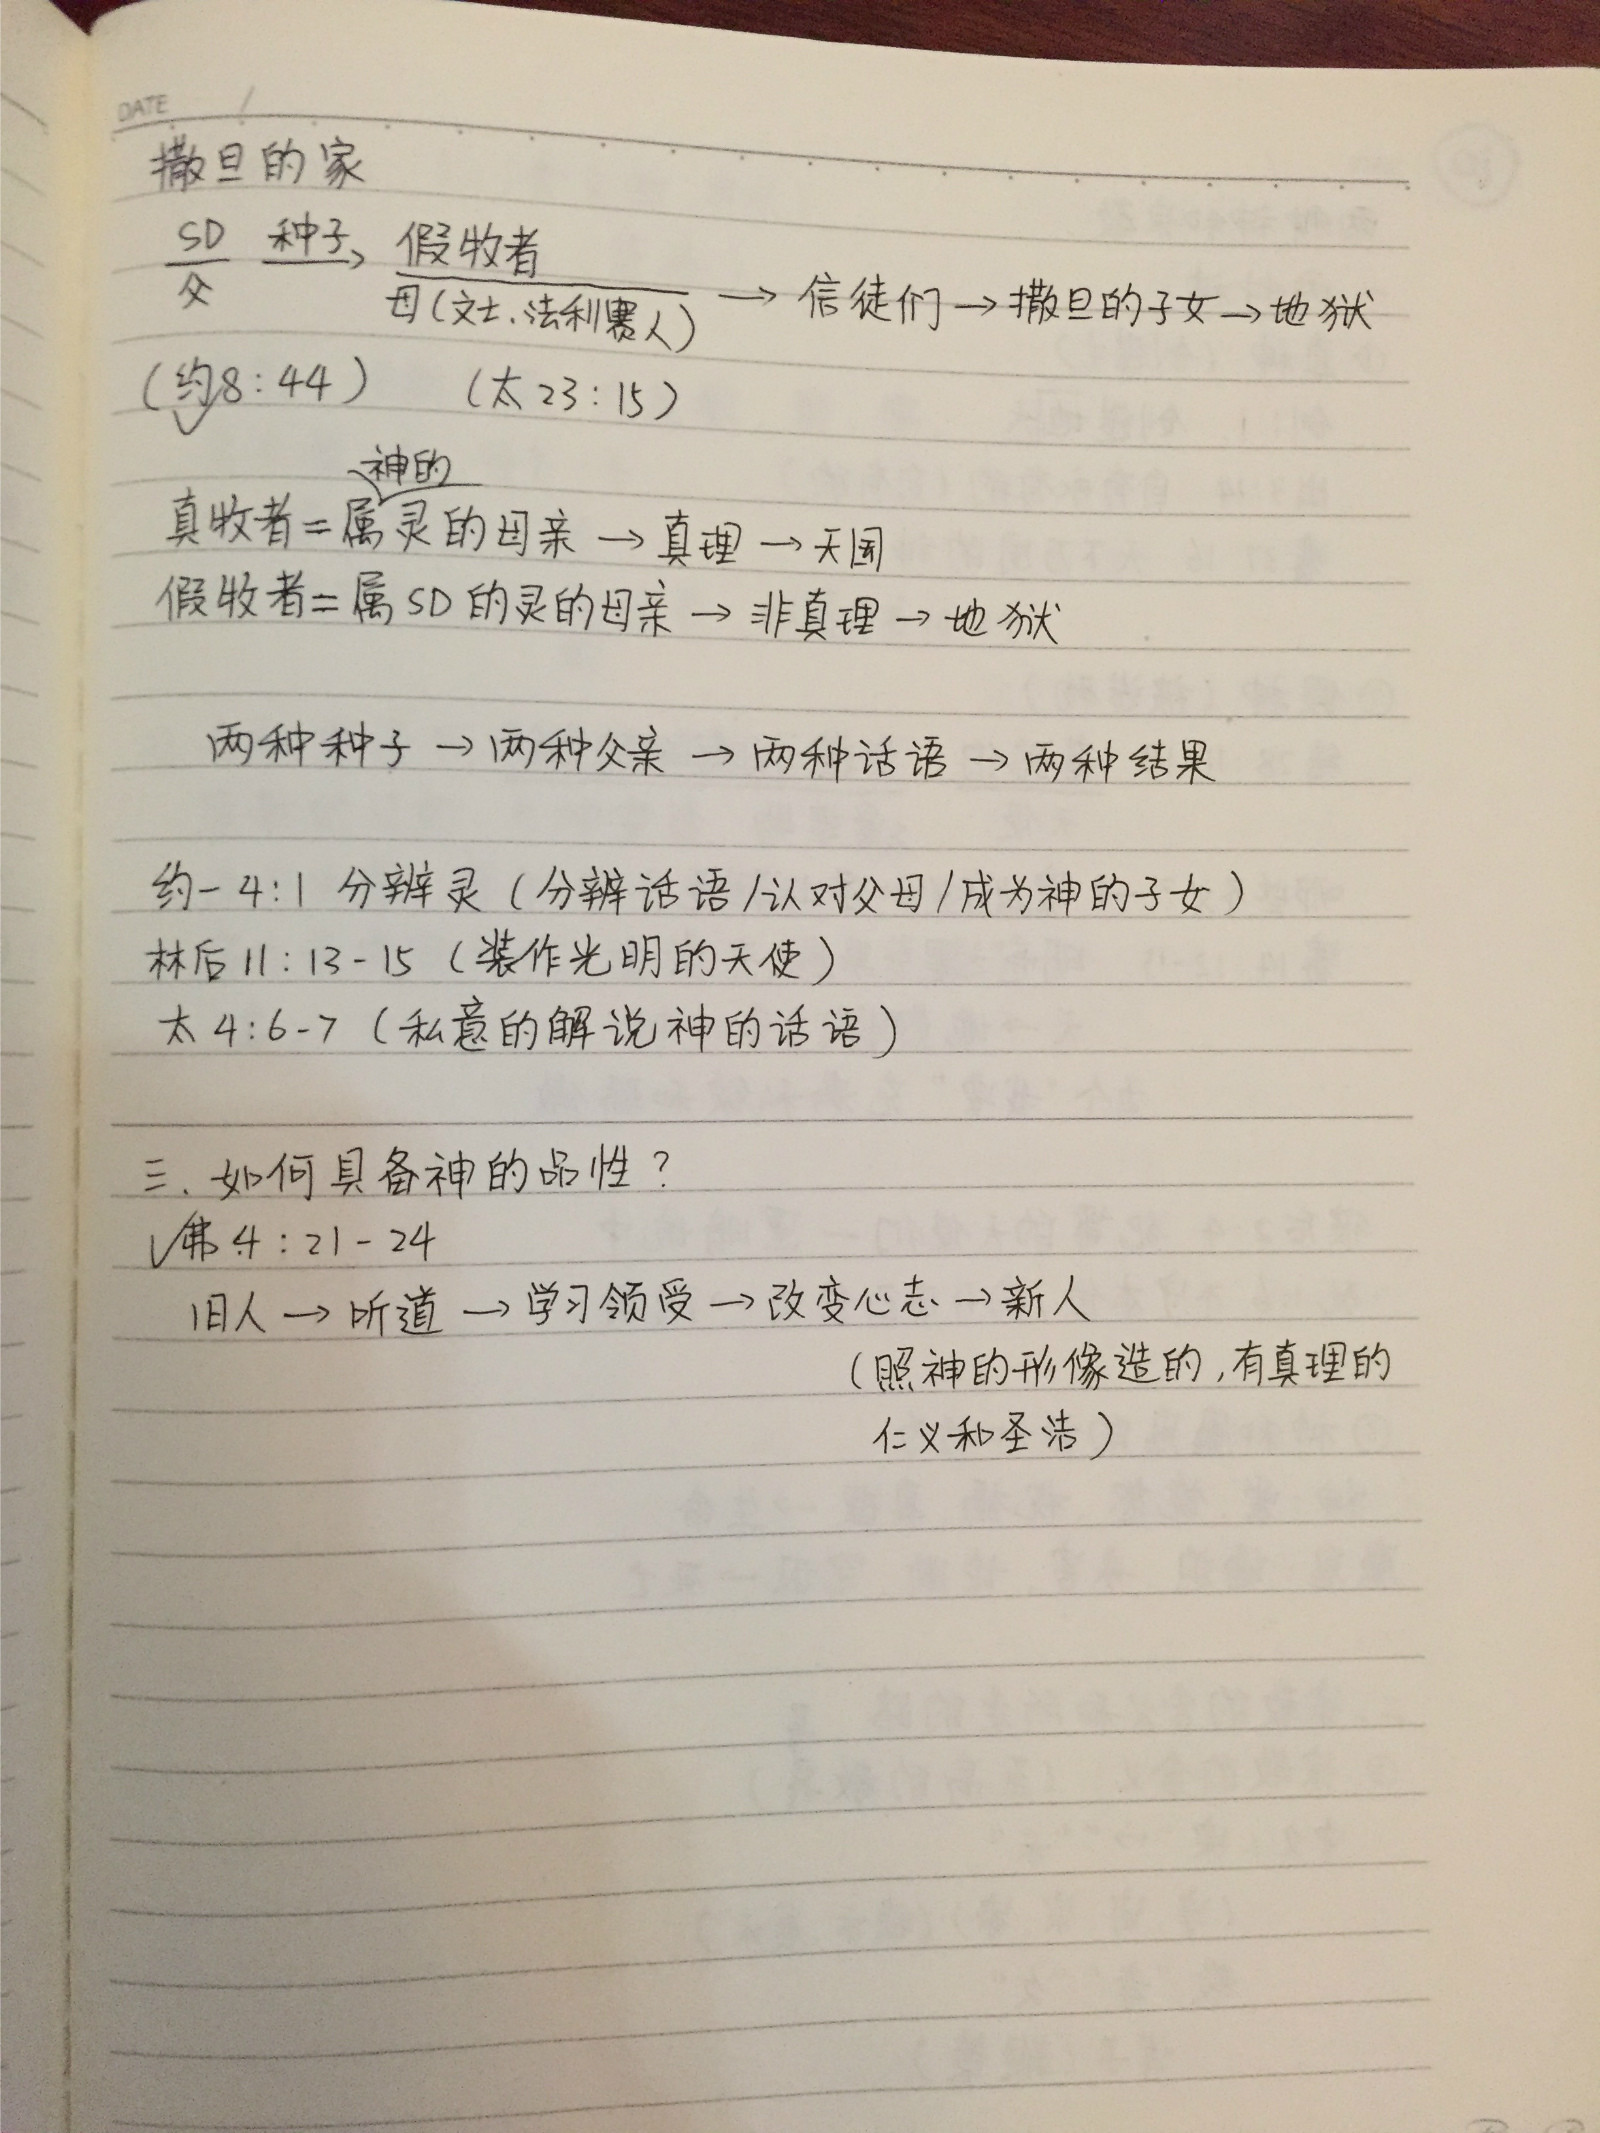 DATE /
撒旦的家
SD 种子→ 假牧者
父 母(文士、法利赛人) → 信徒们 → 撒旦的子女 → 地狱
(约8:44) (太23:15)
神的
真牧者=属灵的母亲 → 真理 → 天国
假牧者=属SD的灵的母亲 → 非真理 → 地狱
两种种子 → 两种父亲 → 两种话语 → 两种结果
约一4:1 分辨灵(分辨话语/认对父母/成为神的子女)
林后11:13-15(装作光明的天使)
太4:6-7(私意的解说神的话语)
三、如何具备神的品性?
√弗4:21-24
旧人 → 听道 → 学习领受 → 改变心志 → 新人
(照神的形像造的,有真理的
仁义和圣洁)